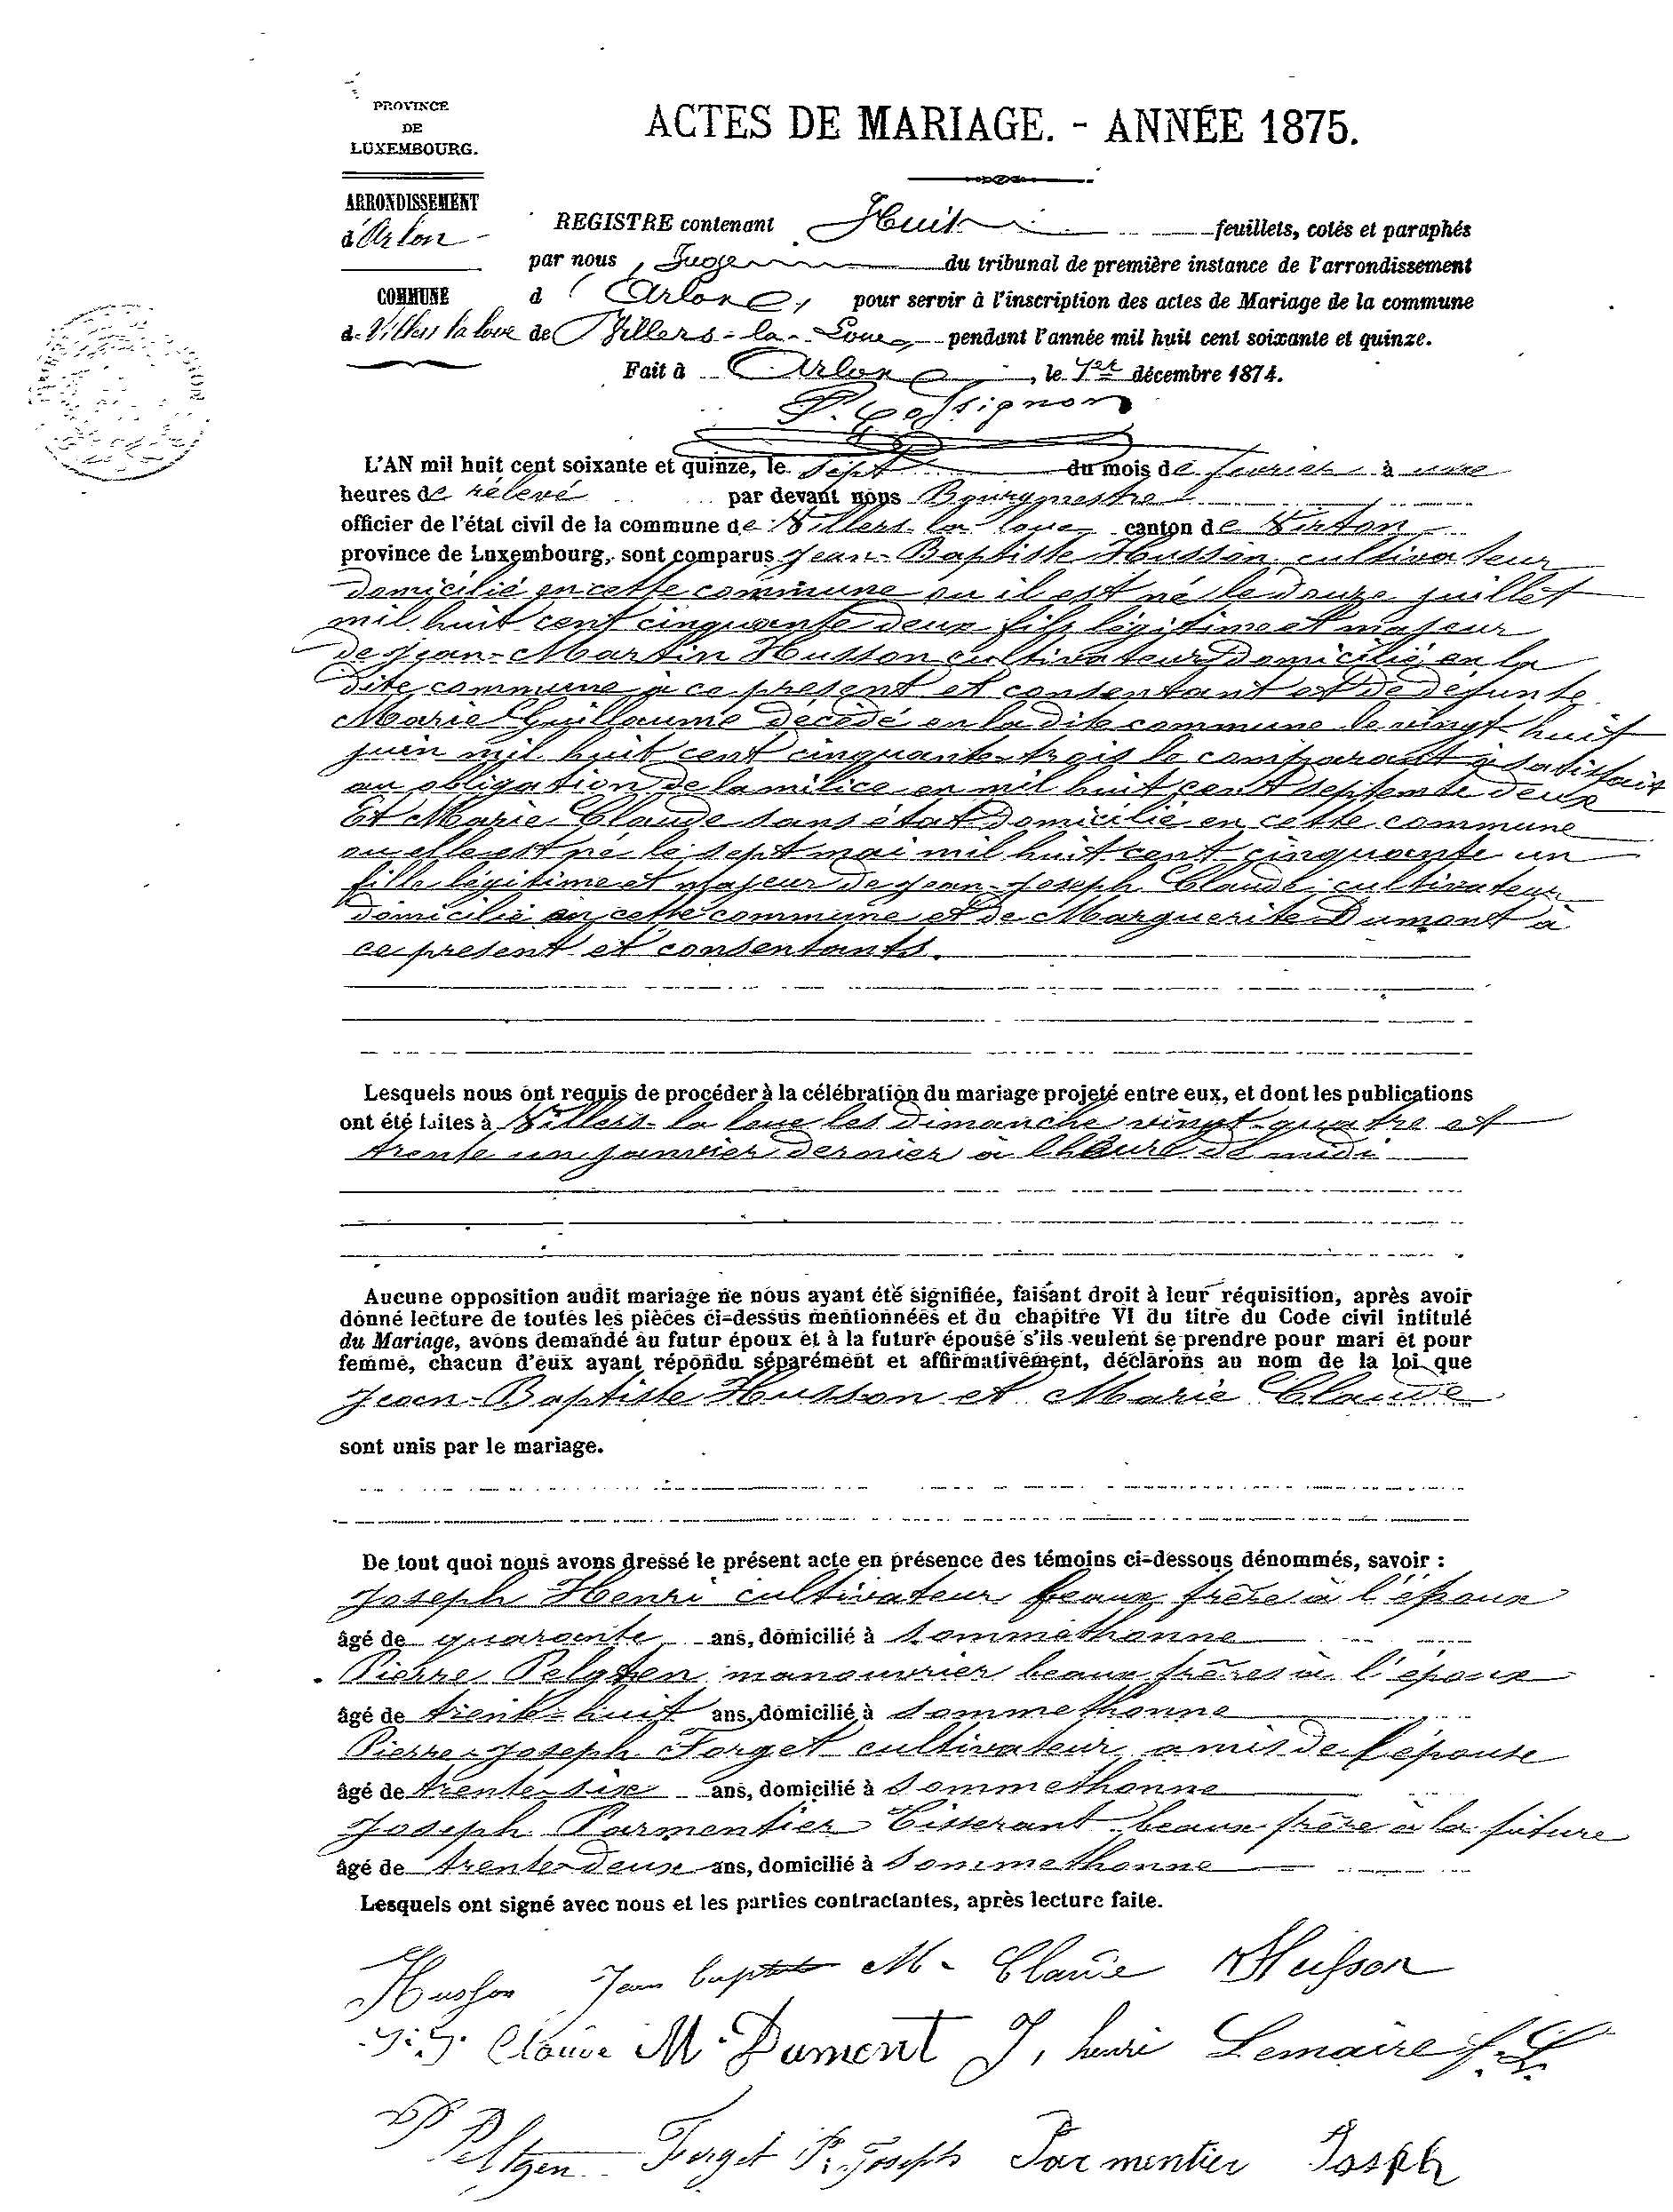 PROVINCE
DE
LUXEMBOURG.
ACTES DE MARIAGE. - ANNÉE 1875.
ARRONDISSEMENT
d'Arlon
COMMUNE
de Villers la loue
REGISTRE contenant Huit feuillets, cotés et paraphés
par nous Juge du tribunal de première instance de l'arrondissement
d'Arlon, pour servir à l'inscription des actes de Mariage de la commune
de Villers-la-Loue pendant l'année mil huit cent soixante et quinze.
Fait à Arlon, le 1er décembre 1874.
L'AN mil huit cent soixante et quinze, le sept du mois de fevrier à une
heures de rélevé par devant nous Bourgmestre
officier de l'état civil de la commune de Villers-la-loue canton de Virton
province de Luxembourg, sont comparus Jean-Baptiste Husson cultivateur
domicilié en cette commune ou il est né le douze juillet
mil huit cent cinquante deux fils légitime et majeur
de Jean-Martin Husson cultivateur domicilié en la
dite commune à ce présent et consentant et de défunte
Marie Guillaume décédé en la dite commune le vingt huit
juin mil huit cent cinquante-trois le comparant à satisfait
au obligation de la milice en mil huit cent septente deux
Et Marie Claude sans état domicilié en cette commune
ou elle est né le sept mai mil huit cent cinquante un
fille légitime et majeur de Jean-Joseph Claude cultivateur
domicilié en cette commune et de Marguerite Dumont à
ce present et consentants.
Lesquels nous ont requis de procéder à la célébration du mariage projeté entre eux, et dont les publications
ont été faites à Villers-la loue les dimanche vingt-quatre et
trente un janvier dernier à l'heure de midi
Aucune opposition audit mariage ne nous ayant été signifiée, faisant droit à leur réquisition, après avoir
donné lecture de toutes les pièces ci-dessus mentionnées et du chapitre VI du titre du Code civil intitulé
du Mariage, avons demandé au futur époux et à la future épouse s'ils veulent se prendre pour mari et pour
femme, chacun d'eux ayant répondu séparément et affirmativement, déclarons au nom de la loi que
Jean-Baptiste Husson et Marie Claude
sont unis par le mariage.
De tout quoi nous avons dressé le présent acte en présence des témoins ci-dessous dénommés, savoir :
Joseph Henri cultivateur beaux frère à l'époux
âgé de quarante ans, domicilié à Sommethonne
Pierre Pelgten manouvrier beaux frères à l'époux
âgé de trente-huit ans, domicilié à Sommethonne
Pierre-Joseph Forget cultivateur amis de l'épouse
âgé de trente-six ans, domicilié à Sommethonne
Joseph Parmentier Tisserant beaux frère à la future
âgé de trente-deux ans, domicilié à Sommethonne
Lesquels ont signé avec nous et les parties contractantes, après lecture faite.
Husson Jean baptiste M- Claude Husson
J.J. Claude M. Dumont J, henri Lemaire f.L.
P Peltgen Forget P. Joseph Parmentier Josph